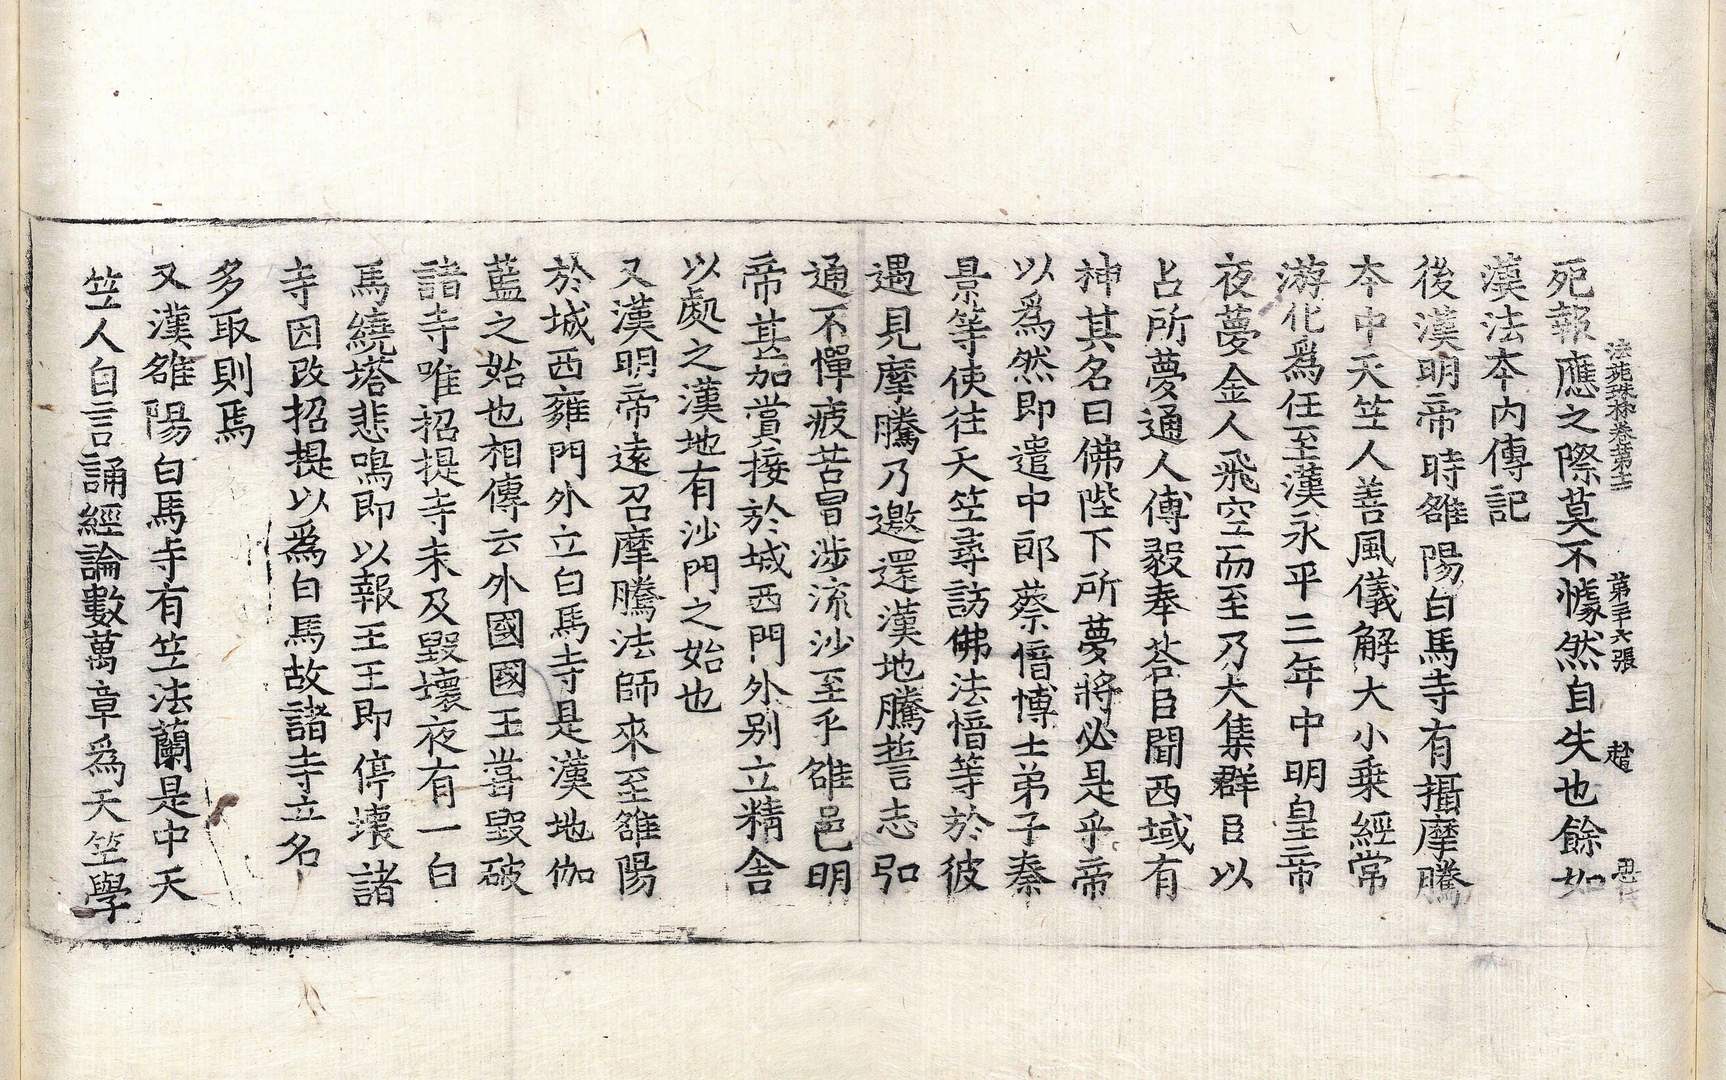 法苑珠林卷第十二 第三十六張 趙
死報應之際莫不懅然自失也餘如
漢法本內傳記
後漢明帝時雒陽白馬寺有攝摩騰
本中天竺人善風儀解大小乘經常
游化爲任至漢永平三年中明皇帝
夜夢金人飛空而至乃大集群臣以
占所夢通人傅毅奉荅臣聞西域有
神其名曰佛陛下所夢將必是乎帝
以爲然即遣中郎蔡愔博士弟子秦
景等使往天竺尋訪佛法愔等於彼
遇見摩騰乃邀還漢地騰誓志弘
通不憚疲苦冒涉流沙至乎雒邑明
帝甚加賞接於城西門外別立精舍
以處之漢地有沙門之始也
又漢明帝遠召摩騰法師來至雒陽
於城西雍門外立白馬寺是漢地伽
藍之始也相傳云外國國王甞毀破
諸寺唯招提寺未及毀壞夜有一白
馬繞塔悲鳴即以報王王即停壞諸
寺因改招提以爲白馬故諸寺立名
多取則焉
又漢雒陽白馬寺有竺法蘭是中天
竺人自言誦經論數萬章爲天竺學